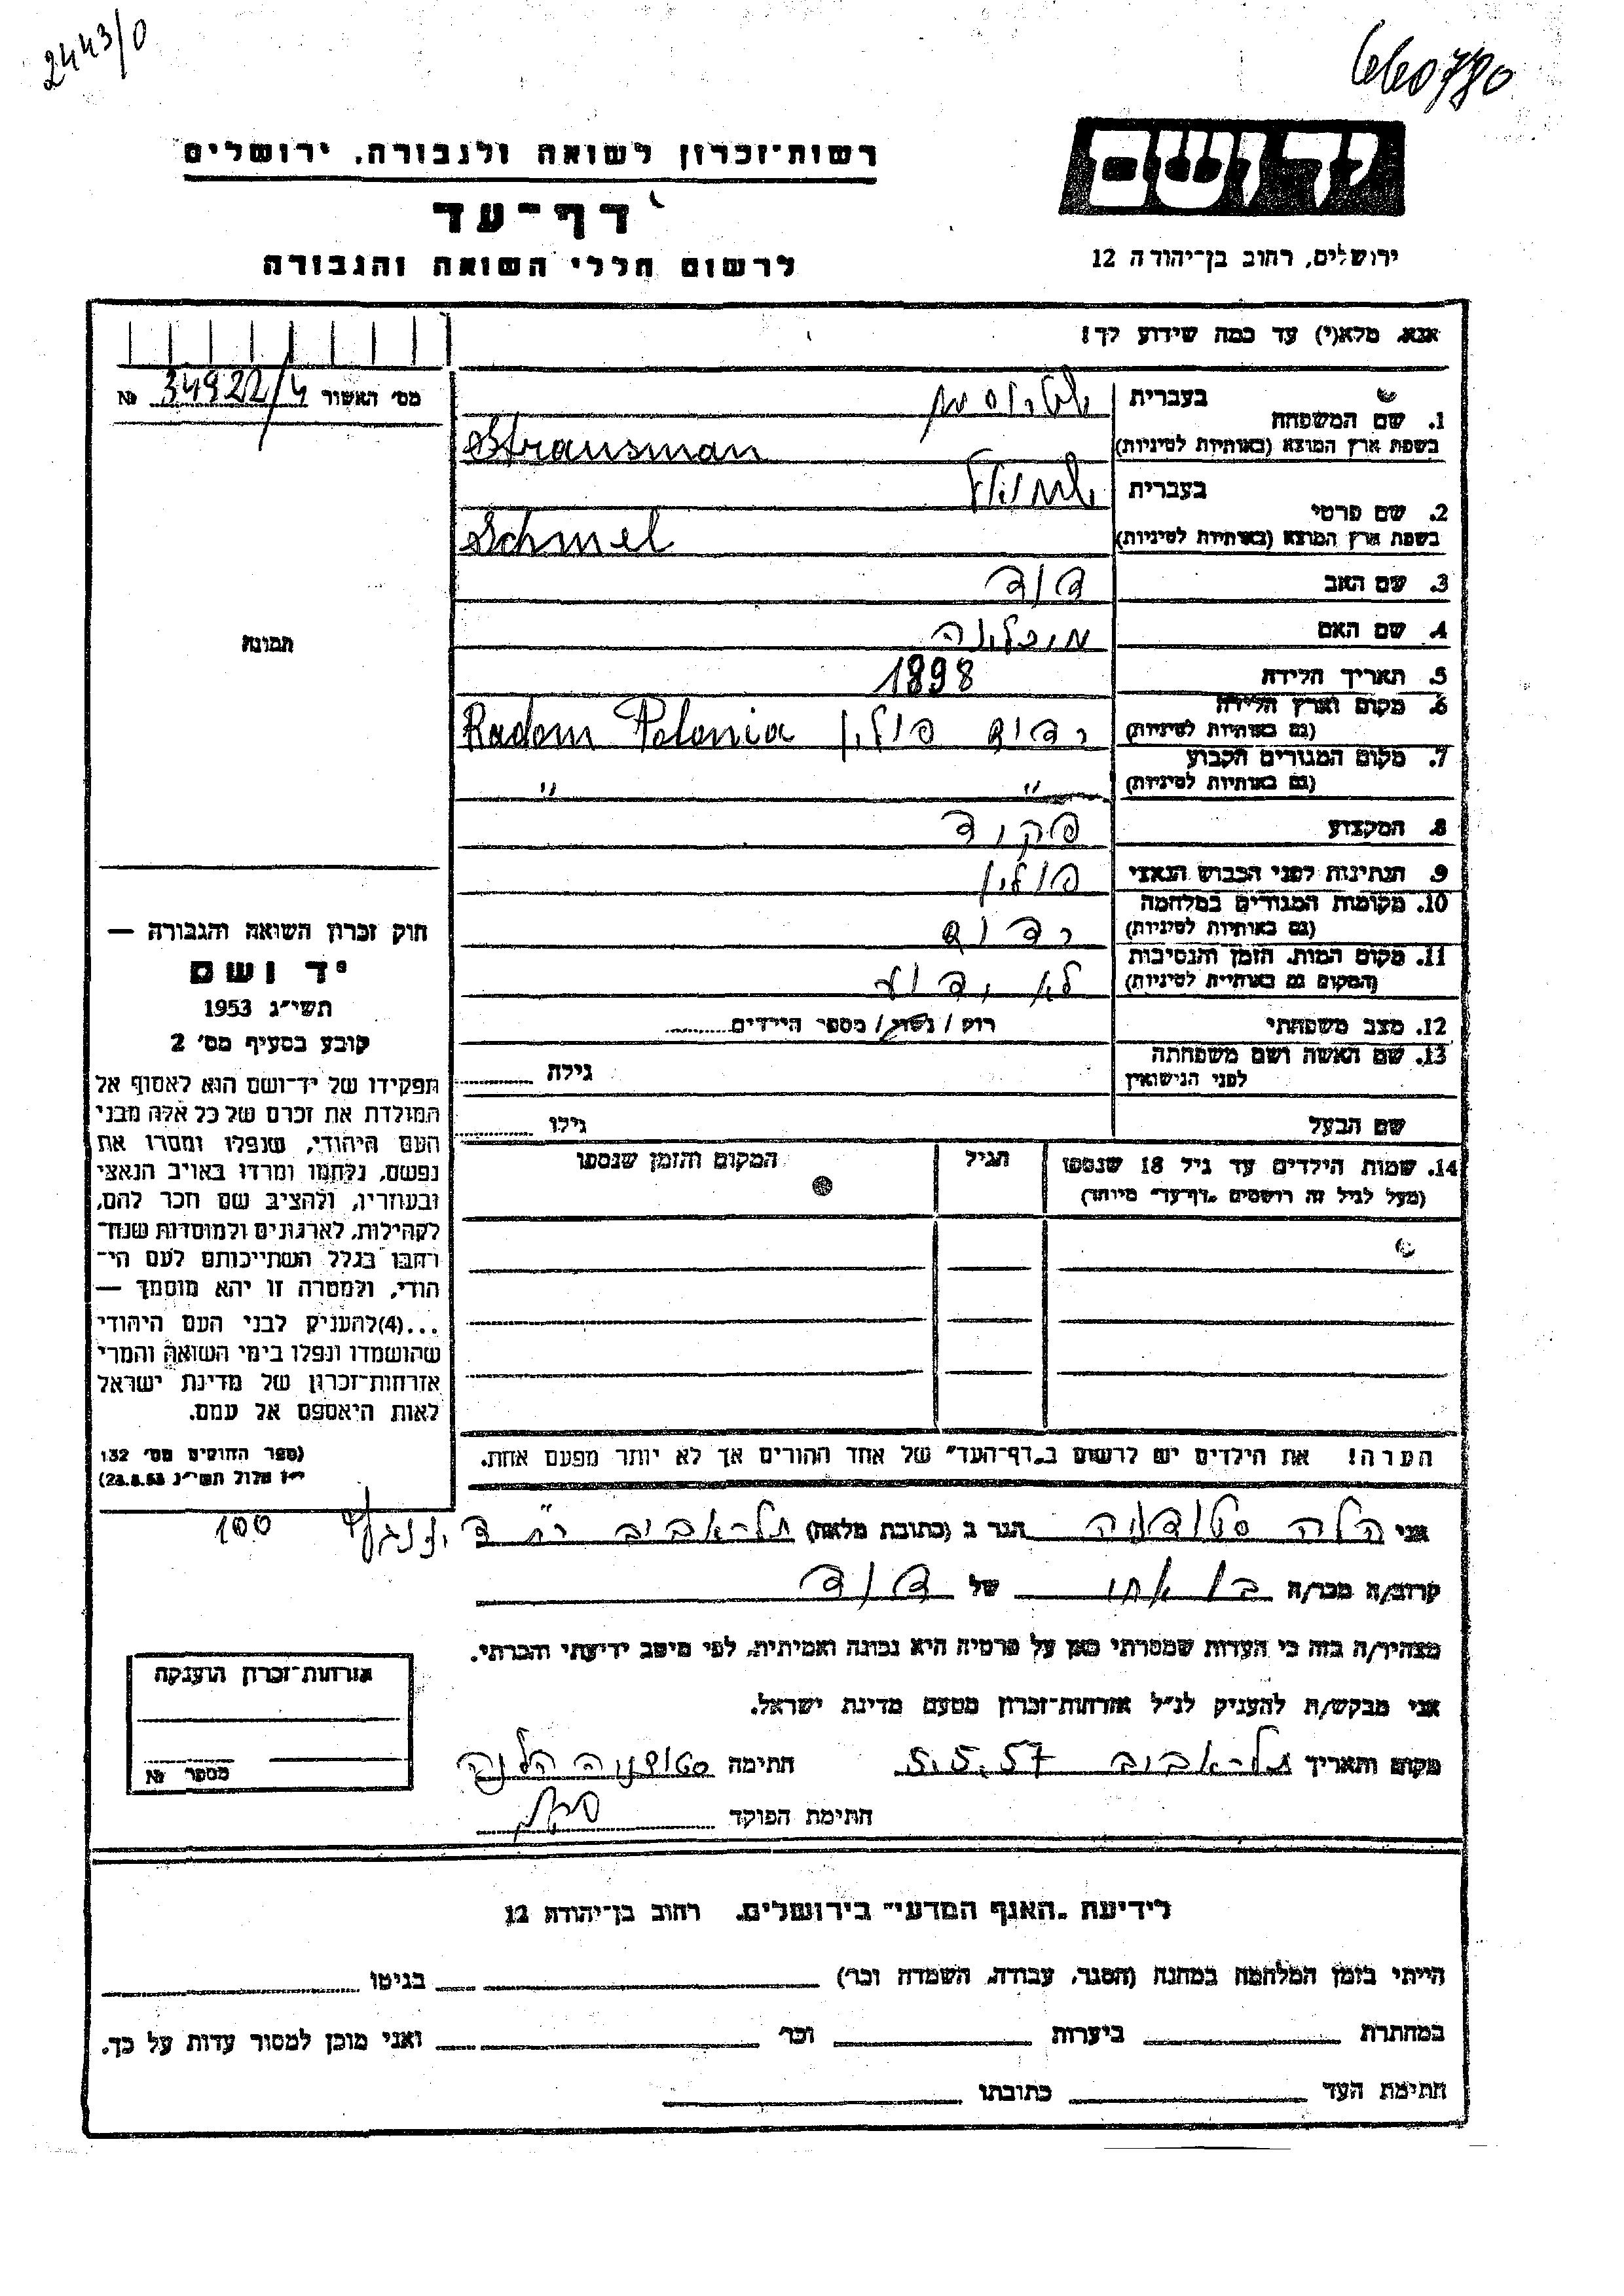 2443/0
660780
יד ושם
רשות־זכרון לשואה ולגבורה, ירושלים
דף־עד
לרשום חללי השואה והגבורה
ירושלים, רחוב בן־יהודה 12
אנא, מלא(י) עד כמה שידוע לך!
מס׳ האשור 34922/4 №
בעברית
1. שם המשפחה
בשפת ארץ המוצא (באותיות לטיניות) Strausman
בעברית שמואל
2. שם פרטי
בשפת ארץ המוצא (באותיות לטיניות) Schmel
3. שם האב דוד
4. שם האם
תמונה
5. תאריך הלידה 1898
6. מקום וארץ הלידה רדום פולין Radom Polonia
(גם באותיות לטיניות)
7. מקום המגורים הקבוע
(גם באותיות לטיניות) " "
8. המקצוע פקיד
9. הנתינות לפני הכבוש הנאצי פולין
10. מקומות המגורים במלחמה
(גם באותיות לטיניות) רדום
11. מקום המות, הזמן והנסיבות
(המקום גם באותיות לטיניות) לא ידוע
12. מצב משפחתי רווק / נשוי / מספר הילדים
13. שם האשה ושם משפחתה
לפני הנישואין
גילה
שם הבעל גילו
14. שמות הילדים עד גיל 18 שנספו הגיל המקום והזמן שנספו
(מעל לגיל זה רושמים „דף־עד״ מיוחד)
חוק זכרון השואה והגבורה —
יד ושם
תשי״ג 1953
קובע בסעיף מס׳ 2
תפקידו של יד־ושם הוא לאסוף אל
המולדת את זכרם של כל אלה מבני
העם היהודי, שנפלו ומסרו את
נפשם, נלחמו ומרדו באויב הנאצי
ובעוזריו, ולהציב שם וזכר להם,
לקהילות, לארגונים ולמוסדות שנח־
רבו בגלל השתייכותם לעם הי־
הודי, ולמטרה זו יהא מוסמך —
...(4) להעניק לבני העם היהודי
שהושמדו ונפלו בימי השואה והמרי
אזרחות־זכרון של מדינת ישראל
לאות היאספם אל עמם.
(ספר החוקים מס׳ 132
י״ז אלול תשי״ג 28.8.53)
הערה! את הילדים יש לרשום ב„דף־העד״ של אחד ההורים אך לא יותר מפעם אחת.
אני הלה הגר ב (כתובת מלאה) תל־אביב 100
קרוב/ה מכר/ה בן אחי של דוד
מצהיר/ה בזה כי העדות שמסרתי כאן על פרטיה היא נכונה ואמיתית, לפי מיטב ידיעתי והכרתי.
אני מבקש/ת להעניק לנ״ל אזרחות־זכרון מטעם מדינת ישראל.
מקום ותאריך תל־אביב 5.5.57 חתימה
חתימת הפוקד
אזרחות־זכרון הוענקה
מספר №
לידיעת „האגף המדעי״ בירושלים, רחוב בן־יהודה 12
הייתי בזמן המלחמה במחנה (הסגר, עבודה, השמדה וכו׳) בגיטו
במחתרת ביערות וכו׳ ואני מוכן למסור עדות על כך.
חתימת העד כתובתו